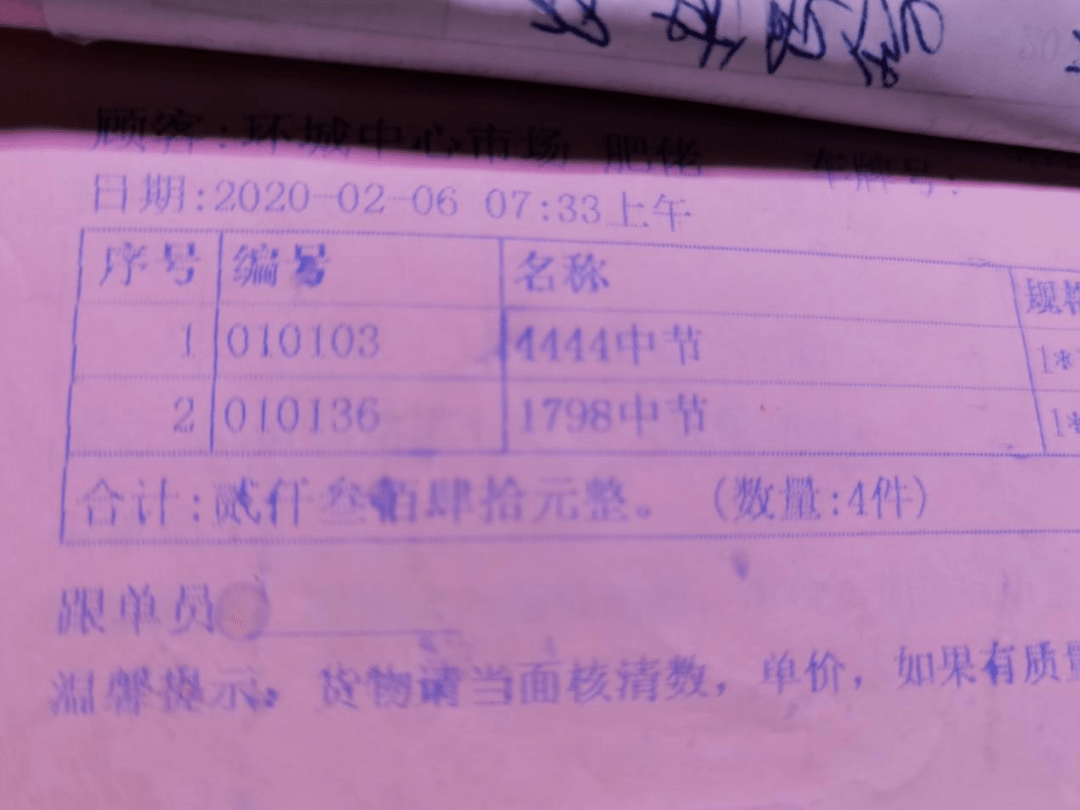 顾客:环城中心市场 肥佬 车牌号:
日期:2020-02-06 07:33上午
序号 编号 名称 规格
1 010103 4444中节 1*
2 010136 1798中节 1*
合计:贰仟叁佰肆拾元整。 (数量:4件)
跟单员
温馨提示: 货物请当面核清数, 单价, 如果有质量